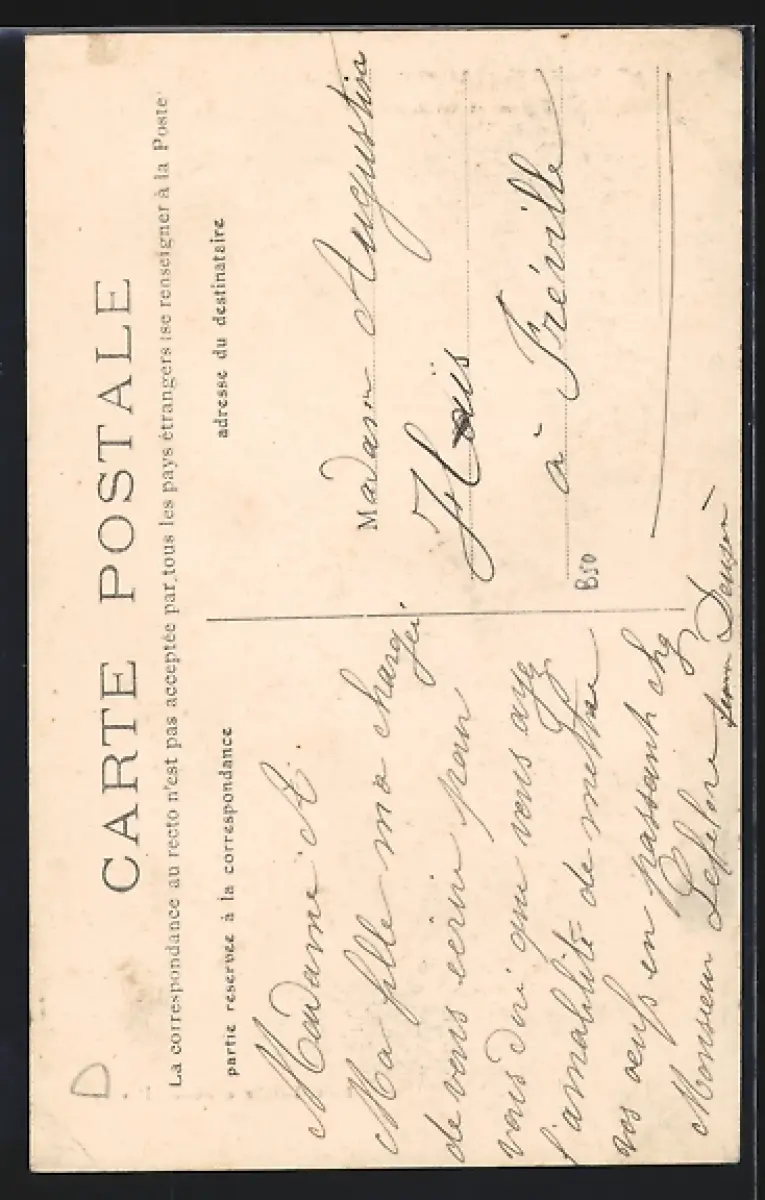 D
CARTE POSTALE
La correspondance au recto n'est pas acceptée par tous les pays étrangers (se renseigner à la Poste
partie reservée à la correspondance
Madame A.
Ma fille m'a charger
de vous ecrire pour
vous dire que vous ayez
l'amabilité de mettre
vos oeufs en passant chez
Monsieur Lefebre
adresse du destinataire
Madame Augustine
à Fréville
B50